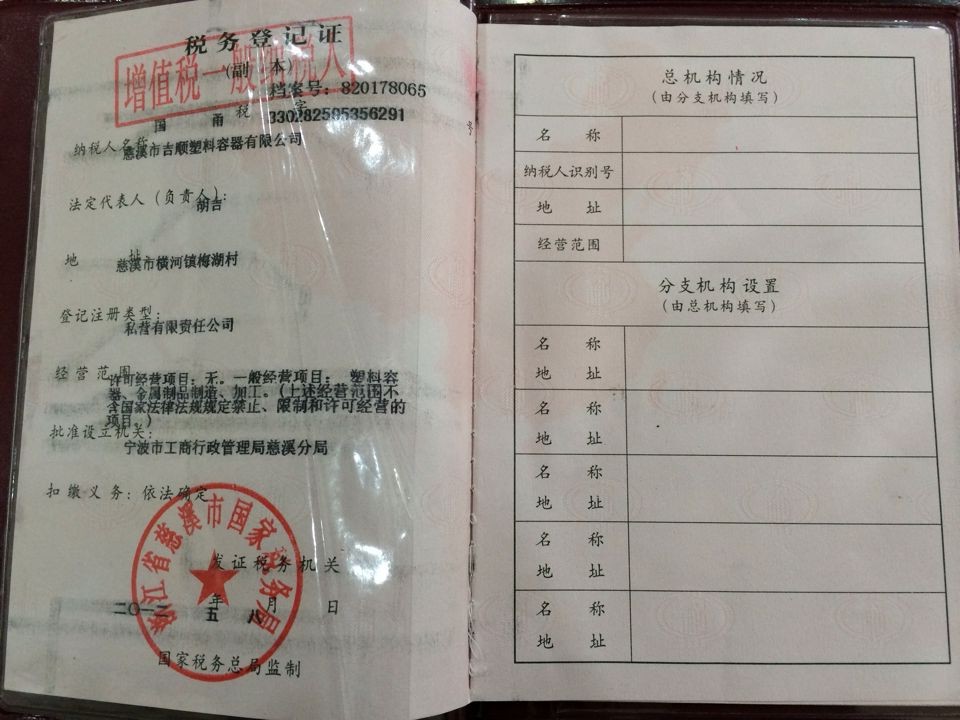 税务登记证
(副 本)
增值税一般纳税人
档案号：820178065
国 甬 税 字 330282595356291 号
纳税人名称
慈溪市吉顺塑料容器有限公司
法定代表人（负责人）：
胡吉
地 址
慈溪市横河镇梅湖村
登记注册类型：
私营有限责任公司
经营范围
许可经营项目：无。一般经营项目： 塑料容
器、金属制品制造、加工。(上述经营范围不
含国家法律法规规定禁止、限制和许可经营的
项目。)
批准设立机关：
宁波市工商行政管理局慈溪分局
扣缴义务：依法确定
浙江省慈溪市国家税务局
发证税务机关
二〇一二 年 五 月 八 日
国家税务总局监制
总机构情况
（由分支机构填写）
名 称
纳税人识别号
地 址
经营范围
分支机构设置
（由总机构填写）
名 称
地 址
名 称
地 址
名 称
地 址
名 称
地 址
名 称
地 址